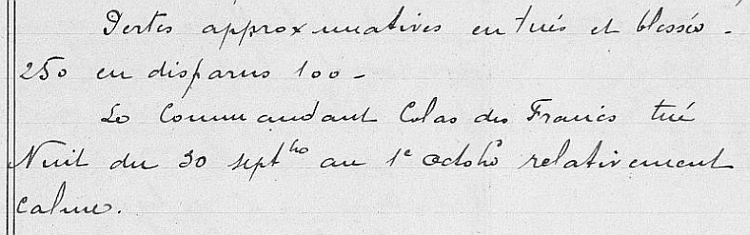 Pertes approximatives en tués et blessés -
250 en disparus 100 -
Le Commandant Colas des Francs tué
Nuit du 30 sept^bre au 1^e octob^re relativement
calme.